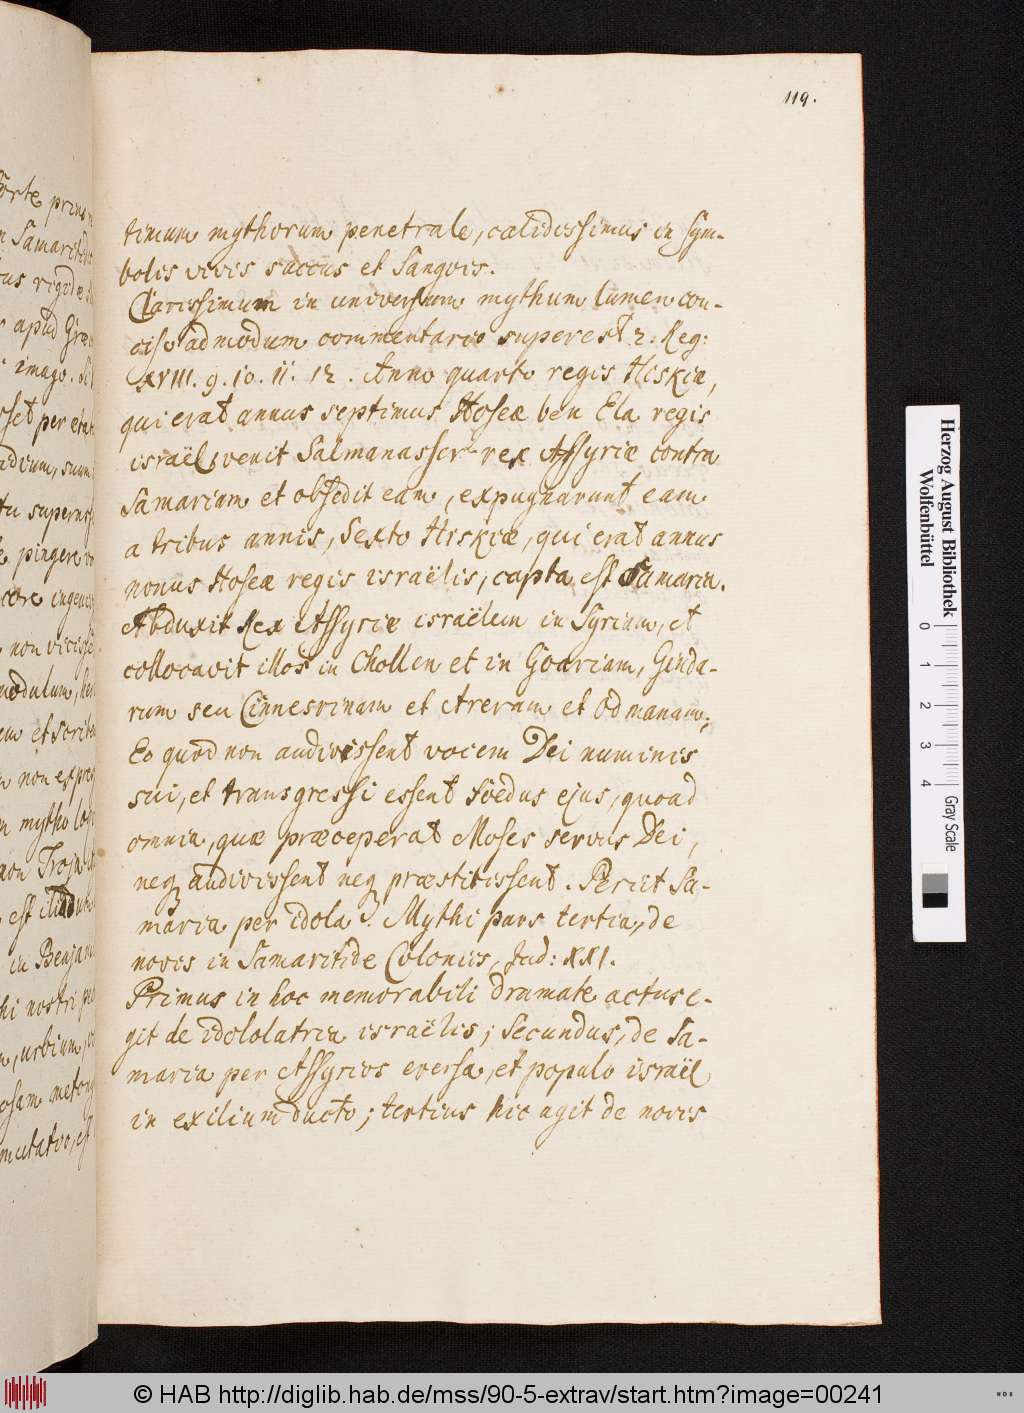 119.
timum mythorum penetrale, calidissimus in sym-
bolis vivis succus et sangvis.
Clarissimum in universum mythum lumen con-
ciso admodum commentario superest 2. Reg:
XVIII. 9. 10. 11. 12. Anno quarto regis Hiskiæ,
qui erat annus septimus Hoseæ ben Ela regis
israël, venit Salmanasser rex Assyriæ contra
Samariam et obsedit eam, expugnarunt eam
a tribus annis, Sexto Hiskiæ, qui erat annus
nonus Hoseæ regis israëlis, capta est Samaria.
Abduxit Rex Assyriæ israëlem in Syriam, et
collocavit illos in Chollen et in Goariam, Ginda-
rum seu Cinnesrinam et Areram et Odmanam;
Eo quod non audivissent vocem Dei numinis
sui, et transgressi essent foedus ejus, quoad
omnia, quæ præceperat Moses servus Dei,
neq audivissent neq præstitissent. Periit Sa-
maria per idola. Mythi pars tertia, de
novis in Samaritide Coloniis, Jud: XXI.
Primus in hoc memorabili dramate actus e-
git de idololatria israëlis; Secundus, de Sa-
maria per Assyrios eversa, et populo israël
in exilium ducto; tertius hic agit de novis
Herzog August Bibliothek
Wolfenbüttel
0 1 2 3 4
Gray Scale
© HAB http://diglib.hab.de/mss/90-5-extrav/start.htm?image=00241